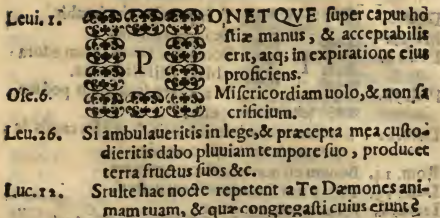 Leui. 1. PONETQVE ſuper caput ho
ſtiæ manus, & acceptabilis
erit, atq; in expiratione eius
proficiens.
Oſe.6. Miſericordiam uolo, & non ſa
crificium.
Leu.26. Si ambulaueritis in lege, & præcepta mea cuſto-
dieritis dabo pluuiam tempore ſuo, producet
terra fructus ſuos &c.
Luc.12. Srulte hac nocte repetent a Te Dæmones ani-
mam tuam, & quæ congregaſti cuius erunt?